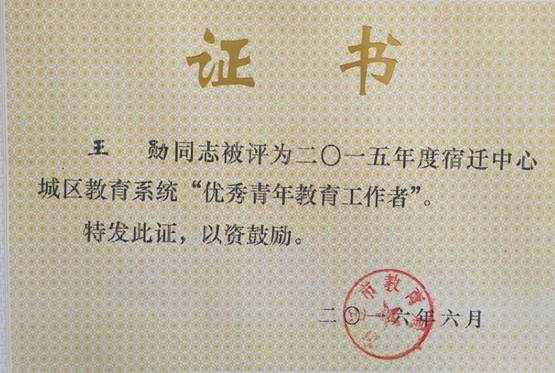 证 书
王 勋同志被评为二〇一五年度宿迁中心
城区教育系统“优秀青年教育工作者”。
特发此证，以资鼓励。
二〇一六年六月
市教育